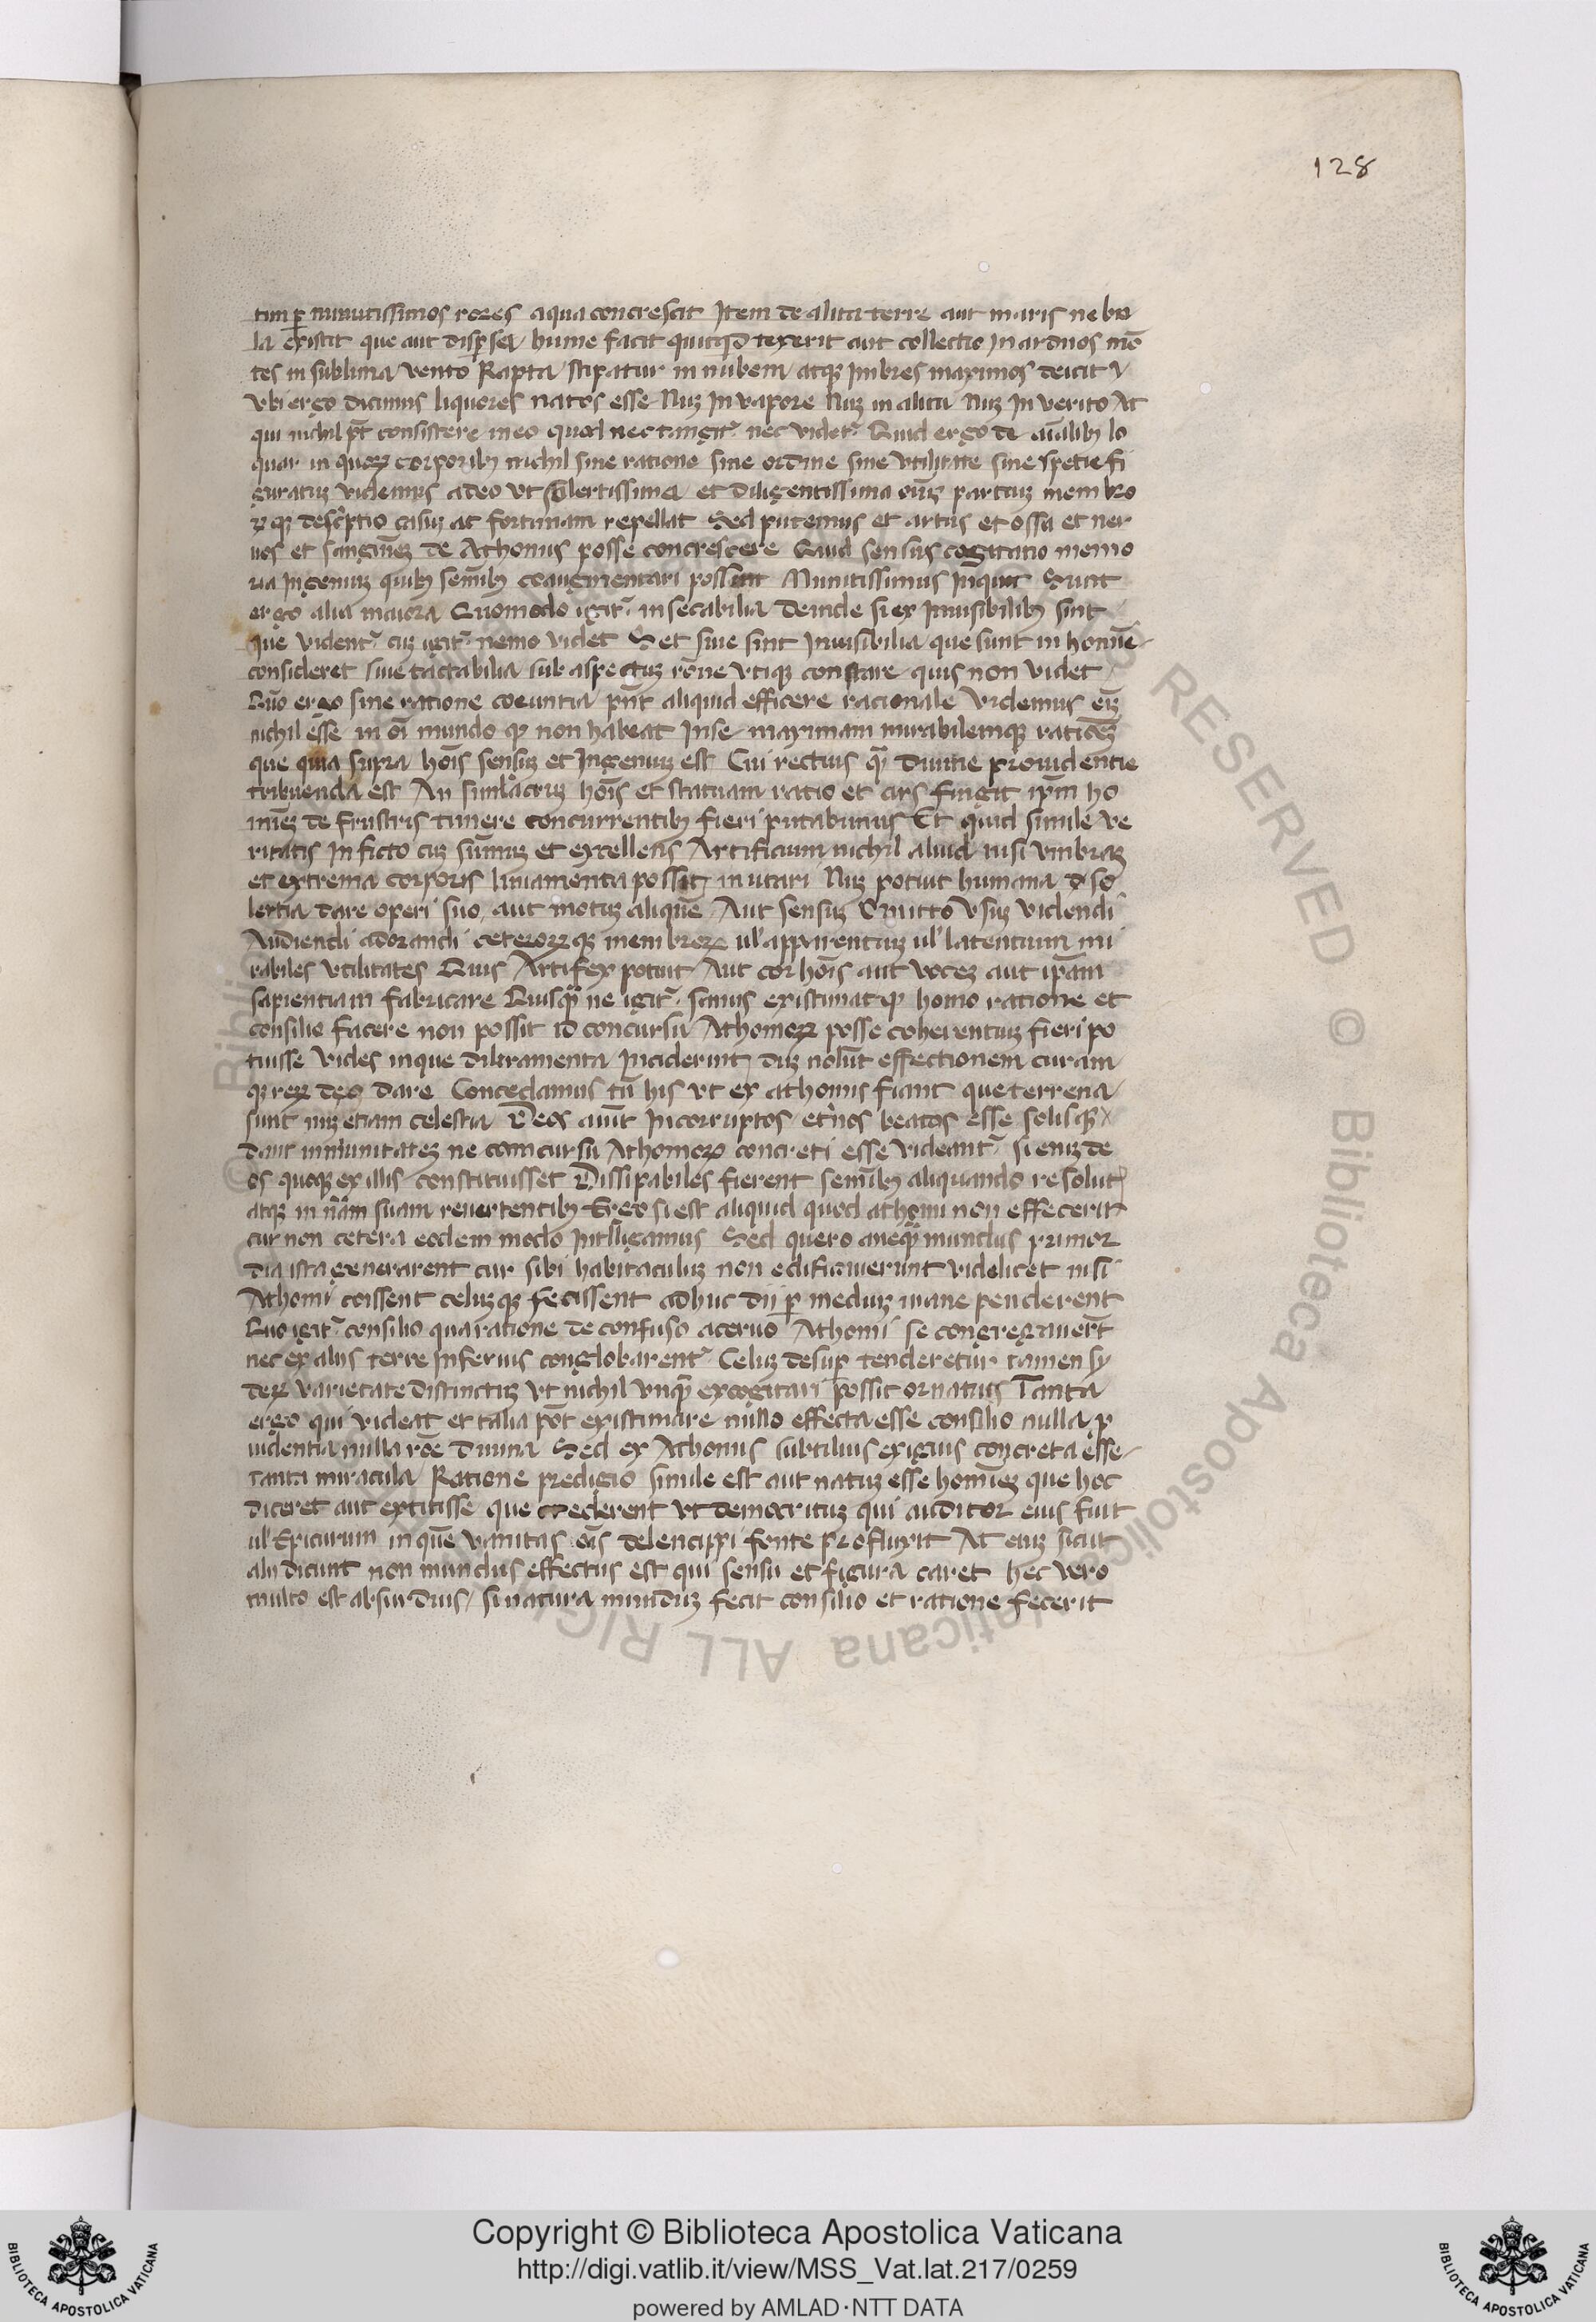 128
tim ꝑ minutissimos rores aqua concrescit Item de alita terre aut maris nebu
la existit que aut dispersa hume facit quicqd texerit aut collectio in arduos mõ
tes in sublima vento Rapta stipatur in nubem atqȝ imbres maximos deicit
vbi ergo dicimus liquores natos esse Nuȝ in vapore Nuȝ in alitu Nuȝ in verito At
qui nichil pt̄ consistere in eo quod nec tangit᷑ nec videt᷑ Quid ergo de aīalibȝ lo
quar in quoꝝ corporibȝ nichil sine ratione sine ordine sine vtilitate sine spetie fi
guratuȝ videmus adeo vt solertissima et diligentissima oīuȝ partiuȝ membro
ꝝqȝ desc͛ptio casuȝ at fortunam repellat Sed putemus et artus et ossa et ner
uos et sanguīeȝ de Athomis posse concrescere Quid sensus cogitatio memo
ria ingeniuȝ quibȝ semībȝ coaugmentari possunt Minutissimus inquit Sunt
ergo alia maiora Quomodo igit᷑ insecabilia deinde si ex Inuisibilibȝ sint
que vident᷑ cuȝ igit᷑ nemo videt Set siue sint Inuisibilia que sunt in homīe
consideret siue tactabilia sub aspectuȝ rōne vtiqȝ constare quis non videt
Quō ergo sine ratione coeuntia pn̄t aliquid efficere racionale Videmus eīȝ
nichil esse in oī mundo ꝙ non habeat in se maximam mirabilemqȝ rationēȝ
que quia supra hoīs sensuȝ et Ingeniuȝ est Cui rectius qȝ̃ diuine prouidentie
tribuenda est An simulacruȝ hoīs et statuam ratio et ars fingit ip̄m ho
mīeȝ de frustris timere concurrentibȝ fieri putabimus Et quid simile ve
ritatis in ficto cuȝ sum̄uȝ et excellens Artificium nichil aliud nisi vmbraȝ
et extrema corporis liniamenta possit imitari Nuȝ potuit humana d so
lertia dare operi suo aut motuȝ aliquē Aut sensuȝ Omitto vsuȝ videndi
Audiendi adorandi ceteroꝝqȝ membroꝝ ul᷑ apparentiuȝ ul᷑ latentium mi
rabiles vtilitates Quis Artifex potuit Aut cor hoīs aut voceȝ aut ip̄am
sapientiam fabricare Quisqȝ̃ ne igit᷑ sanus existimat ꝙ homo ratione et
consilio facere non possit id concursu Athomoꝝ posse coherentiuȝ fieri po
tuisse Vides inque diliramenta Inciderint duȝ nolūt effectionem curam
qȝ reꝝ deo dare Concedamus tn̄ his vt ex athomis fiant que terrena
sunt nuȝ etiam celestia Deos aiūt Incorruptos eternos beatos esse solisqȝ
dant immunitateȝ ne comcursu Athomoꝝ concreti esse videant᷑ si eniȝ de
os quoqȝ ex illis constituisset Dissipabiles fierent semībȝ aliquando resolut᷑
atqȝ in n̄ram suam reuertentibȝ Ergo si est aliquid quod athomi non effecerit
cur non cetera eodem modo Intelligamus Sed quero aneqȝ̃ mundus primor
dia ista generarent cur sibi habitaculuȝ non edificauerunt videlicet nisi
Athomi coissent celuȝqȝ fecissent adhuc dij ꝑ mediuȝ inane penderent
Quo igit᷑ consilio qua ratione de confuso aceruo Athomi se congregauert̄
nec ex alijs terre inferius conglobarent᷑ Celuȝ desuꝑ tenderetur tamen sy
deꝝ varietate distinctuȝ vt nichil vnqȝ̃ excogitari possit ornatus Tanta
ergo qui videat et talia pōt existimare nullo effecta esse consilio nulla ꝓ
uidentia nulla rōe diuina Sed ex Athomis subtilius exiguis concreta esse
tanta miracula Ratione predigio simile est aut natuȝ esse homineȝ que hoc
diceret aut extitisse que crederent vt democrituȝ qui auditor eius fuit
ul᷑ Epicurum in quē vanitas oīs delencippi fonte profluxit At eniȝ sicut
alij dicunt non mundus effectus est qui sensu et figura caret hec vero
multo est absurdius si natura munduȝ fecit consilio et ratione fecerit
Copyright © Biblioteca Apostolica Vaticana
http://digi.vatlib.it/view/MSS_Vat.lat.217/0259
powered by AMLAD·NTT DATA